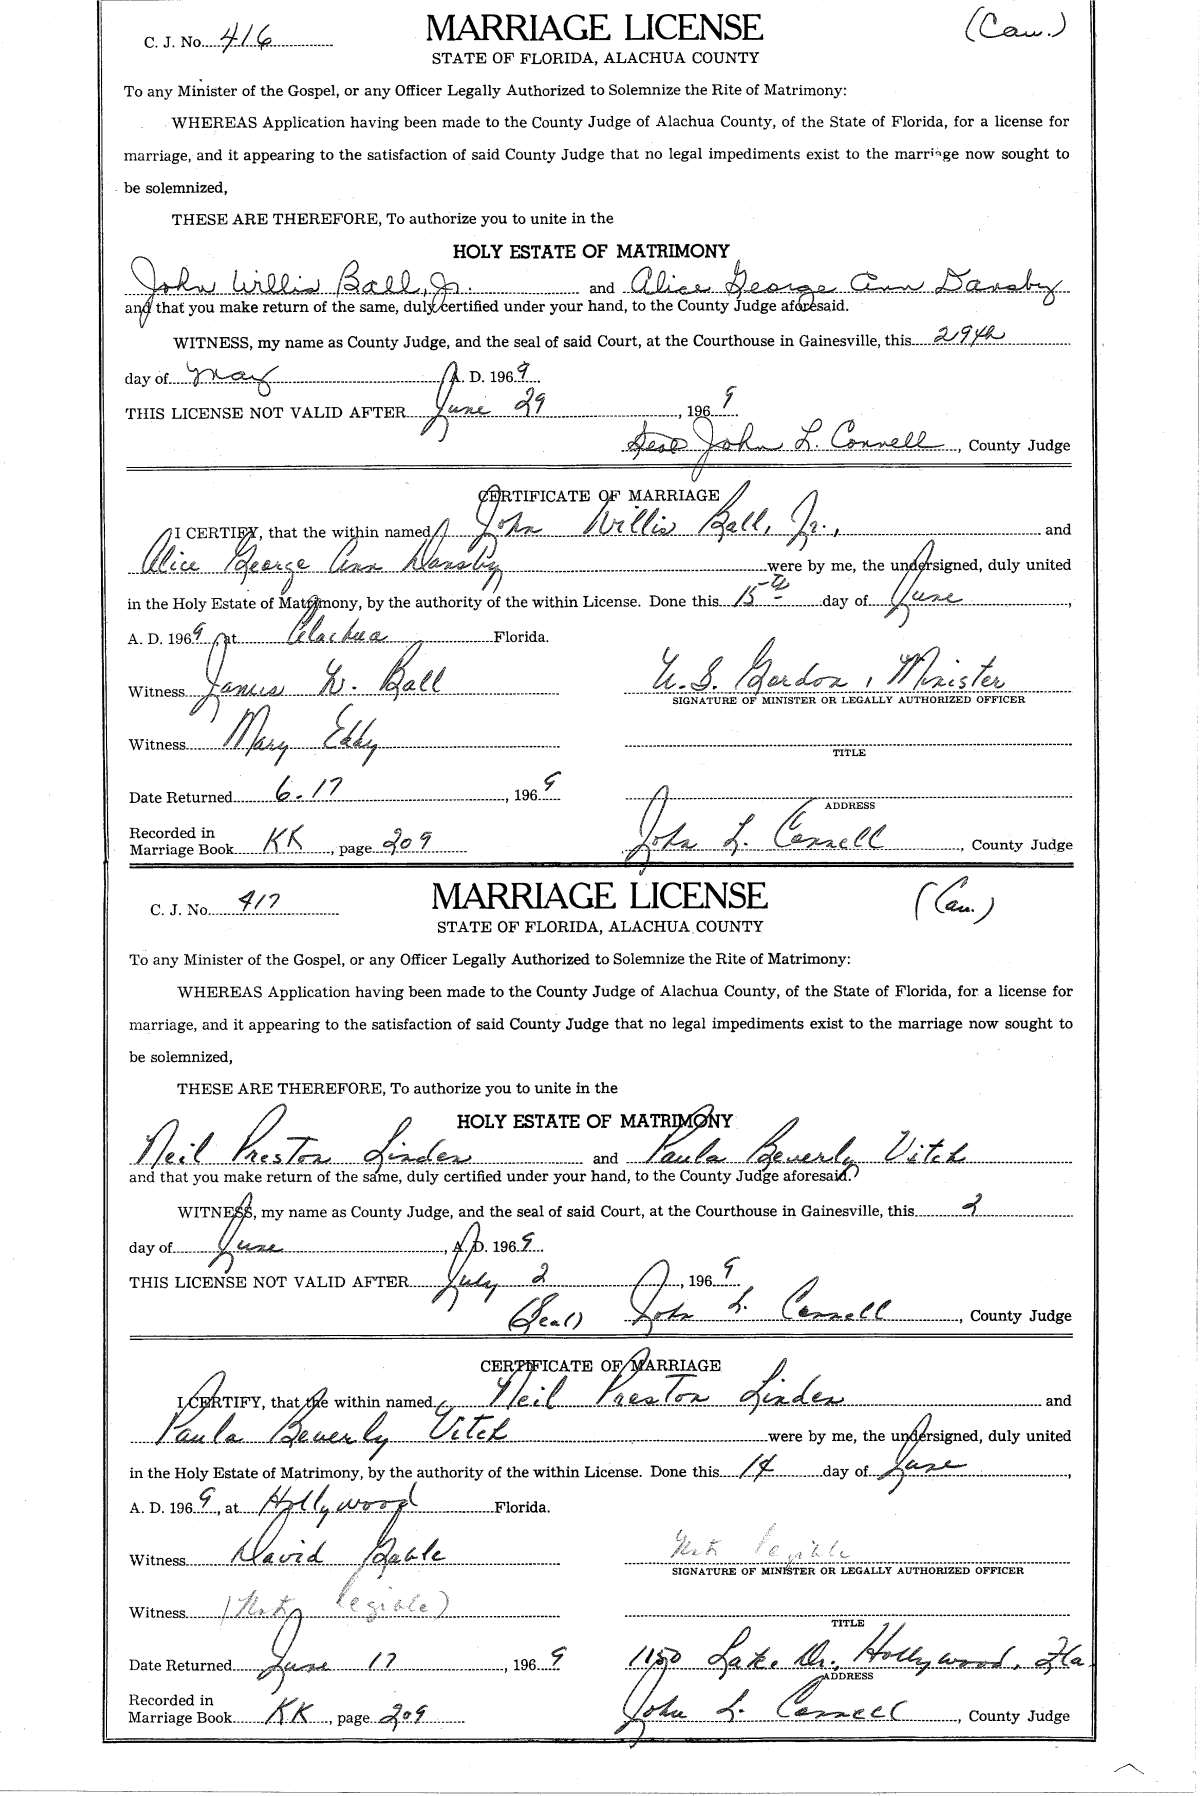 C. J. No. 416 MARRIAGE LICENSE (Cau.)
STATE OF FLORIDA, ALACHUA COUNTY
To any Minister of the Gospel, or any Officer Legally Authorized to Solemnize the Rite of Matrimony:
WHEREAS Application having been made to the County Judge of Alachua County, of the State of Florida, for a license for
marriage, and it appearing to the satisfaction of said County Judge that no legal impediments exist to the marriage now sought to
be solemnized,
THESE ARE THEREFORE, To authorize you to unite in the
HOLY ESTATE OF MATRIMONY
John Willis Ball, Jr. and Alice George Ann Dansby
and that you make return of the same, duly certified under your hand, to the County Judge aforesaid.
WITNESS, my name as County Judge, and the seal of said Court, at the Courthouse in Gainesville, this 29th
day of May A. D. 1969
THIS LICENSE NOT VALID AFTER June 29, 1969
Seal John L. Connell, County Judge
CERTIFICATE OF MARRIAGE
I CERTIFY, that the within named John Willis Ball, Jr., and
Alice George Ann Dansby were by me, the undersigned, duly united
in the Holy Estate of Matrimony, by the authority of the within License. Done this 15th day of June,
A. D. 1969, at Alachua Florida.
Witness James W. Ball U. S. Gordon, Minister
SIGNATURE OF MINISTER OR LEGALLY AUTHORIZED OFFICER
Witness Mary Eddy
TITLE
Date Returned 6-17, 1969
ADDRESS
Recorded in
Marriage Book KK, page 209 John L. Connell, County Judge
C. J. No. 417 MARRIAGE LICENSE (Cau.)
STATE OF FLORIDA, ALACHUA COUNTY
To any Minister of the Gospel, or any Officer Legally Authorized to Solemnize the Rite of Matrimony:
WHEREAS Application having been made to the County Judge of Alachua County, of the State of Florida, for a license for
marriage, and it appearing to the satisfaction of said County Judge that no legal impediments exist to the marriage now sought to
be solemnized,
THESE ARE THEREFORE, To authorize you to unite in the
HOLY ESTATE OF MATRIMONY
Neil Preston Linden and Paula Beverly Vitch
and that you make return of the same, duly certified under your hand, to the County Judge aforesaid.
WITNESS, my name as County Judge, and the seal of said Court, at the Courthouse in Gainesville, this 2
day of June, A. D. 1969
THIS LICENSE NOT VALID AFTER July 2, 1969
(Seal) John L. Connell, County Judge
CERTIFICATE OF MARRIAGE
I CERTIFY, that the within named Neil Preston Linden and
Paula Beverly Vitch were by me, the undersigned, duly united
in the Holy Estate of Matrimony, by the authority of the within License. Done this 14 day of June,
A. D. 1969, at Hollywood Florida.
Witness David Gable Not legible
SIGNATURE OF MINISTER OR LEGALLY AUTHORIZED OFFICER
Witness (Not legible)
TITLE
Date Returned June 17, 1969 1150 Lake Dr., Hollywood, Fla.
ADDRESS
Recorded in
Marriage Book KK, page 209 John L. Connell, County Judge